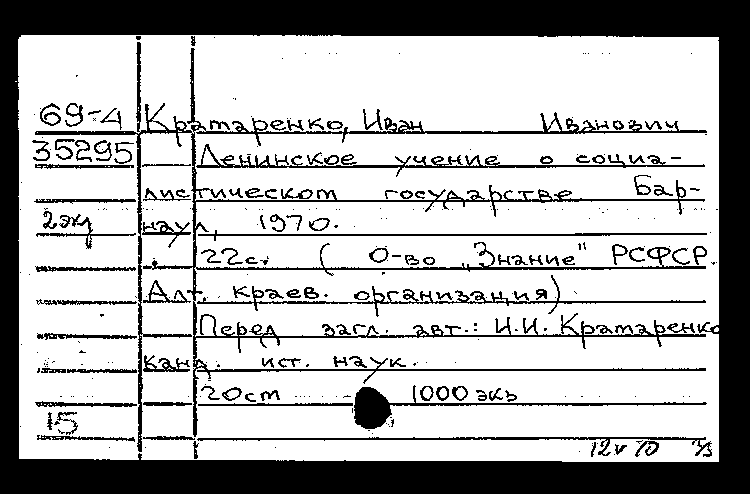 69-4 Кратаренко, Иван Иванович
35295 Ленинское учение о социа-
листическом государстве Бар-
2 экз наул, 1970.
22с. ( О-во „Знание" РСФСР.
Алт. краев. организация)
Перед загл. авт.: И.И. Кратаренко
канд. ист. наук.
20см 1000 экз
15
12 V 70